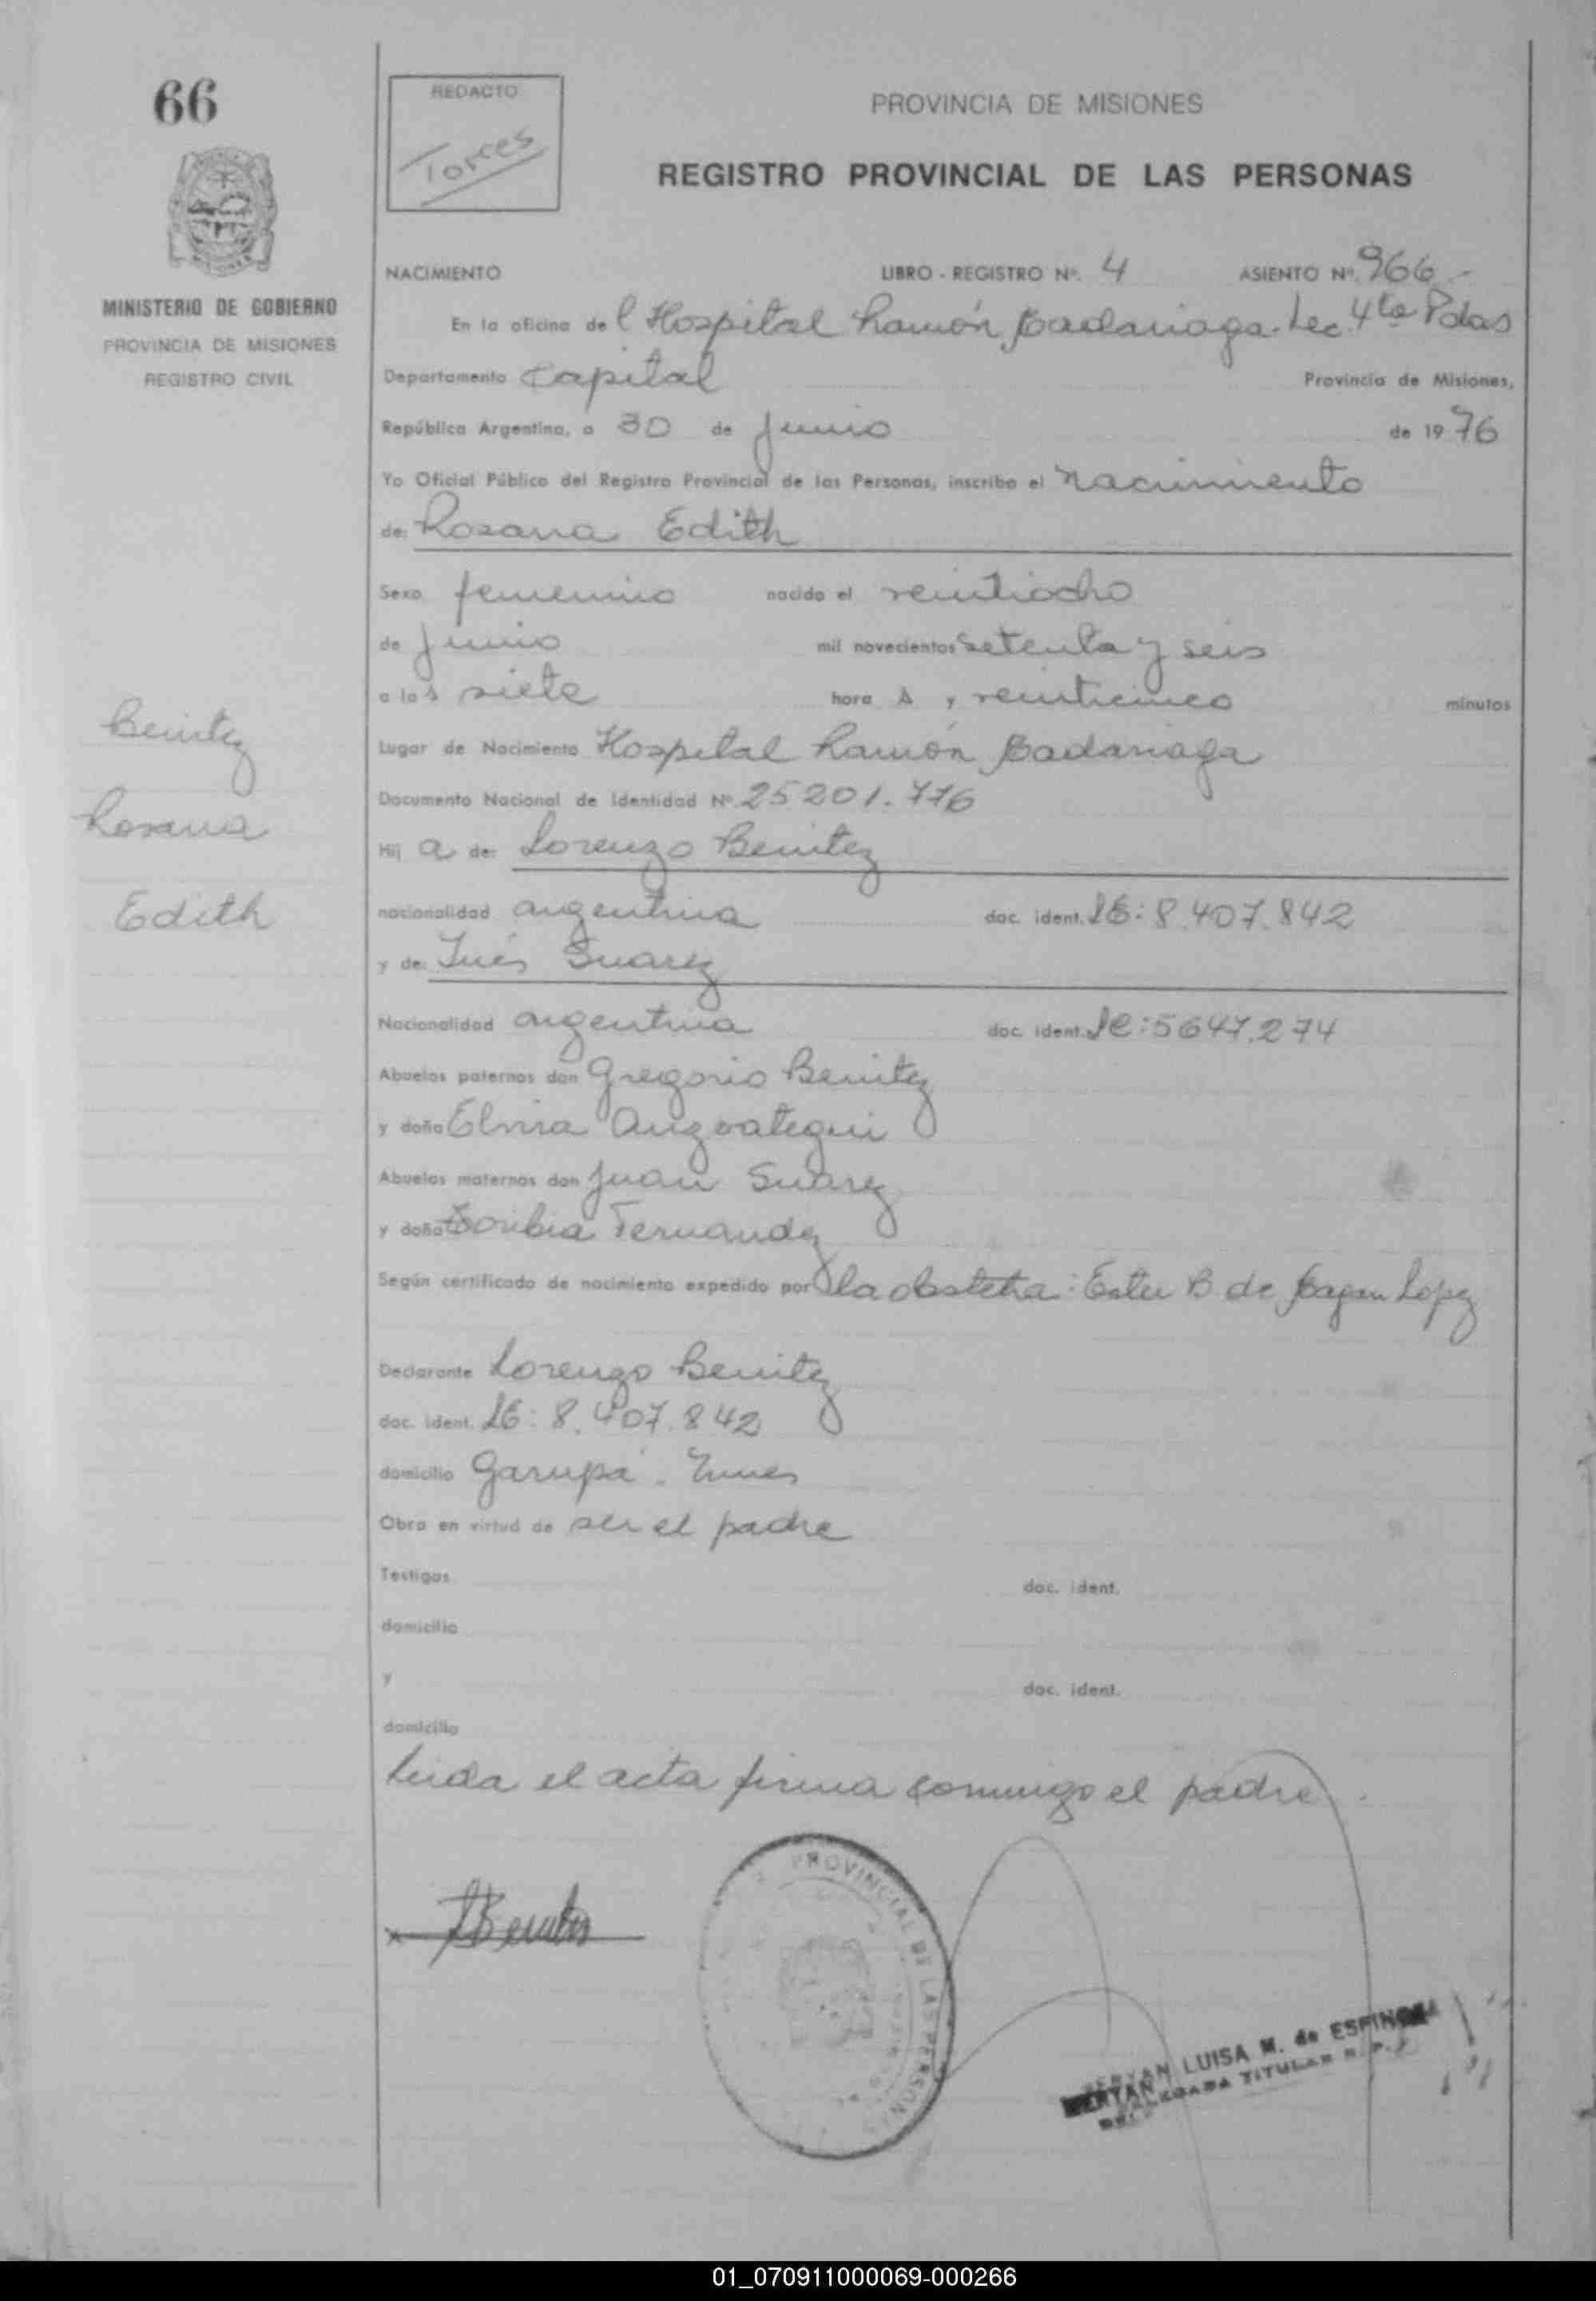 66
REDACTO
Torres
PROVINCIA DE MISIONES
REGISTRO PROVINCIAL DE LAS PERSONAS
MINISTERIO DE GOBIERNO
PROVINCIA DE MISIONES
REGISTRO CIVIL
NACIMIENTO LIBRO - REGISTRO Nº. 4 ASIENTO Nº. 966
En la oficina del Hospital Ramón Madariaga. Sec. 4ta Pdas
Departamento Capital Provincia de Misiones,
República Argentina, a 30 de Junio de 1976
Yo Oficial Público del Registro Provincial de las Personas, inscribo el nacimiento
de: Rosana Edith
Sexo femenino nacido el veintiocho
de Junio mil novecientos setenta y seis
a las siete horas, y veinticinco minutos
Lugar de Nacimiento Hospital Ramón Madariaga
Documento Nacional de Identidad Nº 25 201.776
Hija de: Lorenzo Benitez
nacionalidad argentina doc. ident. LE: 8.407.842
y de: Inés Suarez
Nacionalidad argentina doc. ident. LC: 5647.274
Abuelos paternos don Gregorio Benitez
y doña Elvira Anzoategui
Abuelos maternos don Juan Suarez
y doña Toribia Fernandez
Según certificado de nacimiento expedido por la obstetra: Ester B de Lopez
Declarante Lorenzo Benitez
doc. ident. LE: 8.407.842
domicilio Garupá.
Obra en virtud de ser el padre
Testigos doc. ident.
domicilio
y doc. ident.
domicilio
Leida el acta firma conmigo el padre.
Benitez
Rosana
Edith
x Benitez
PROVINCIAL DE LAS PERSONAS
LUISA M. de ESPINOSA
DELEGADA TITULAR R. P. P.
01_070911000069-000266